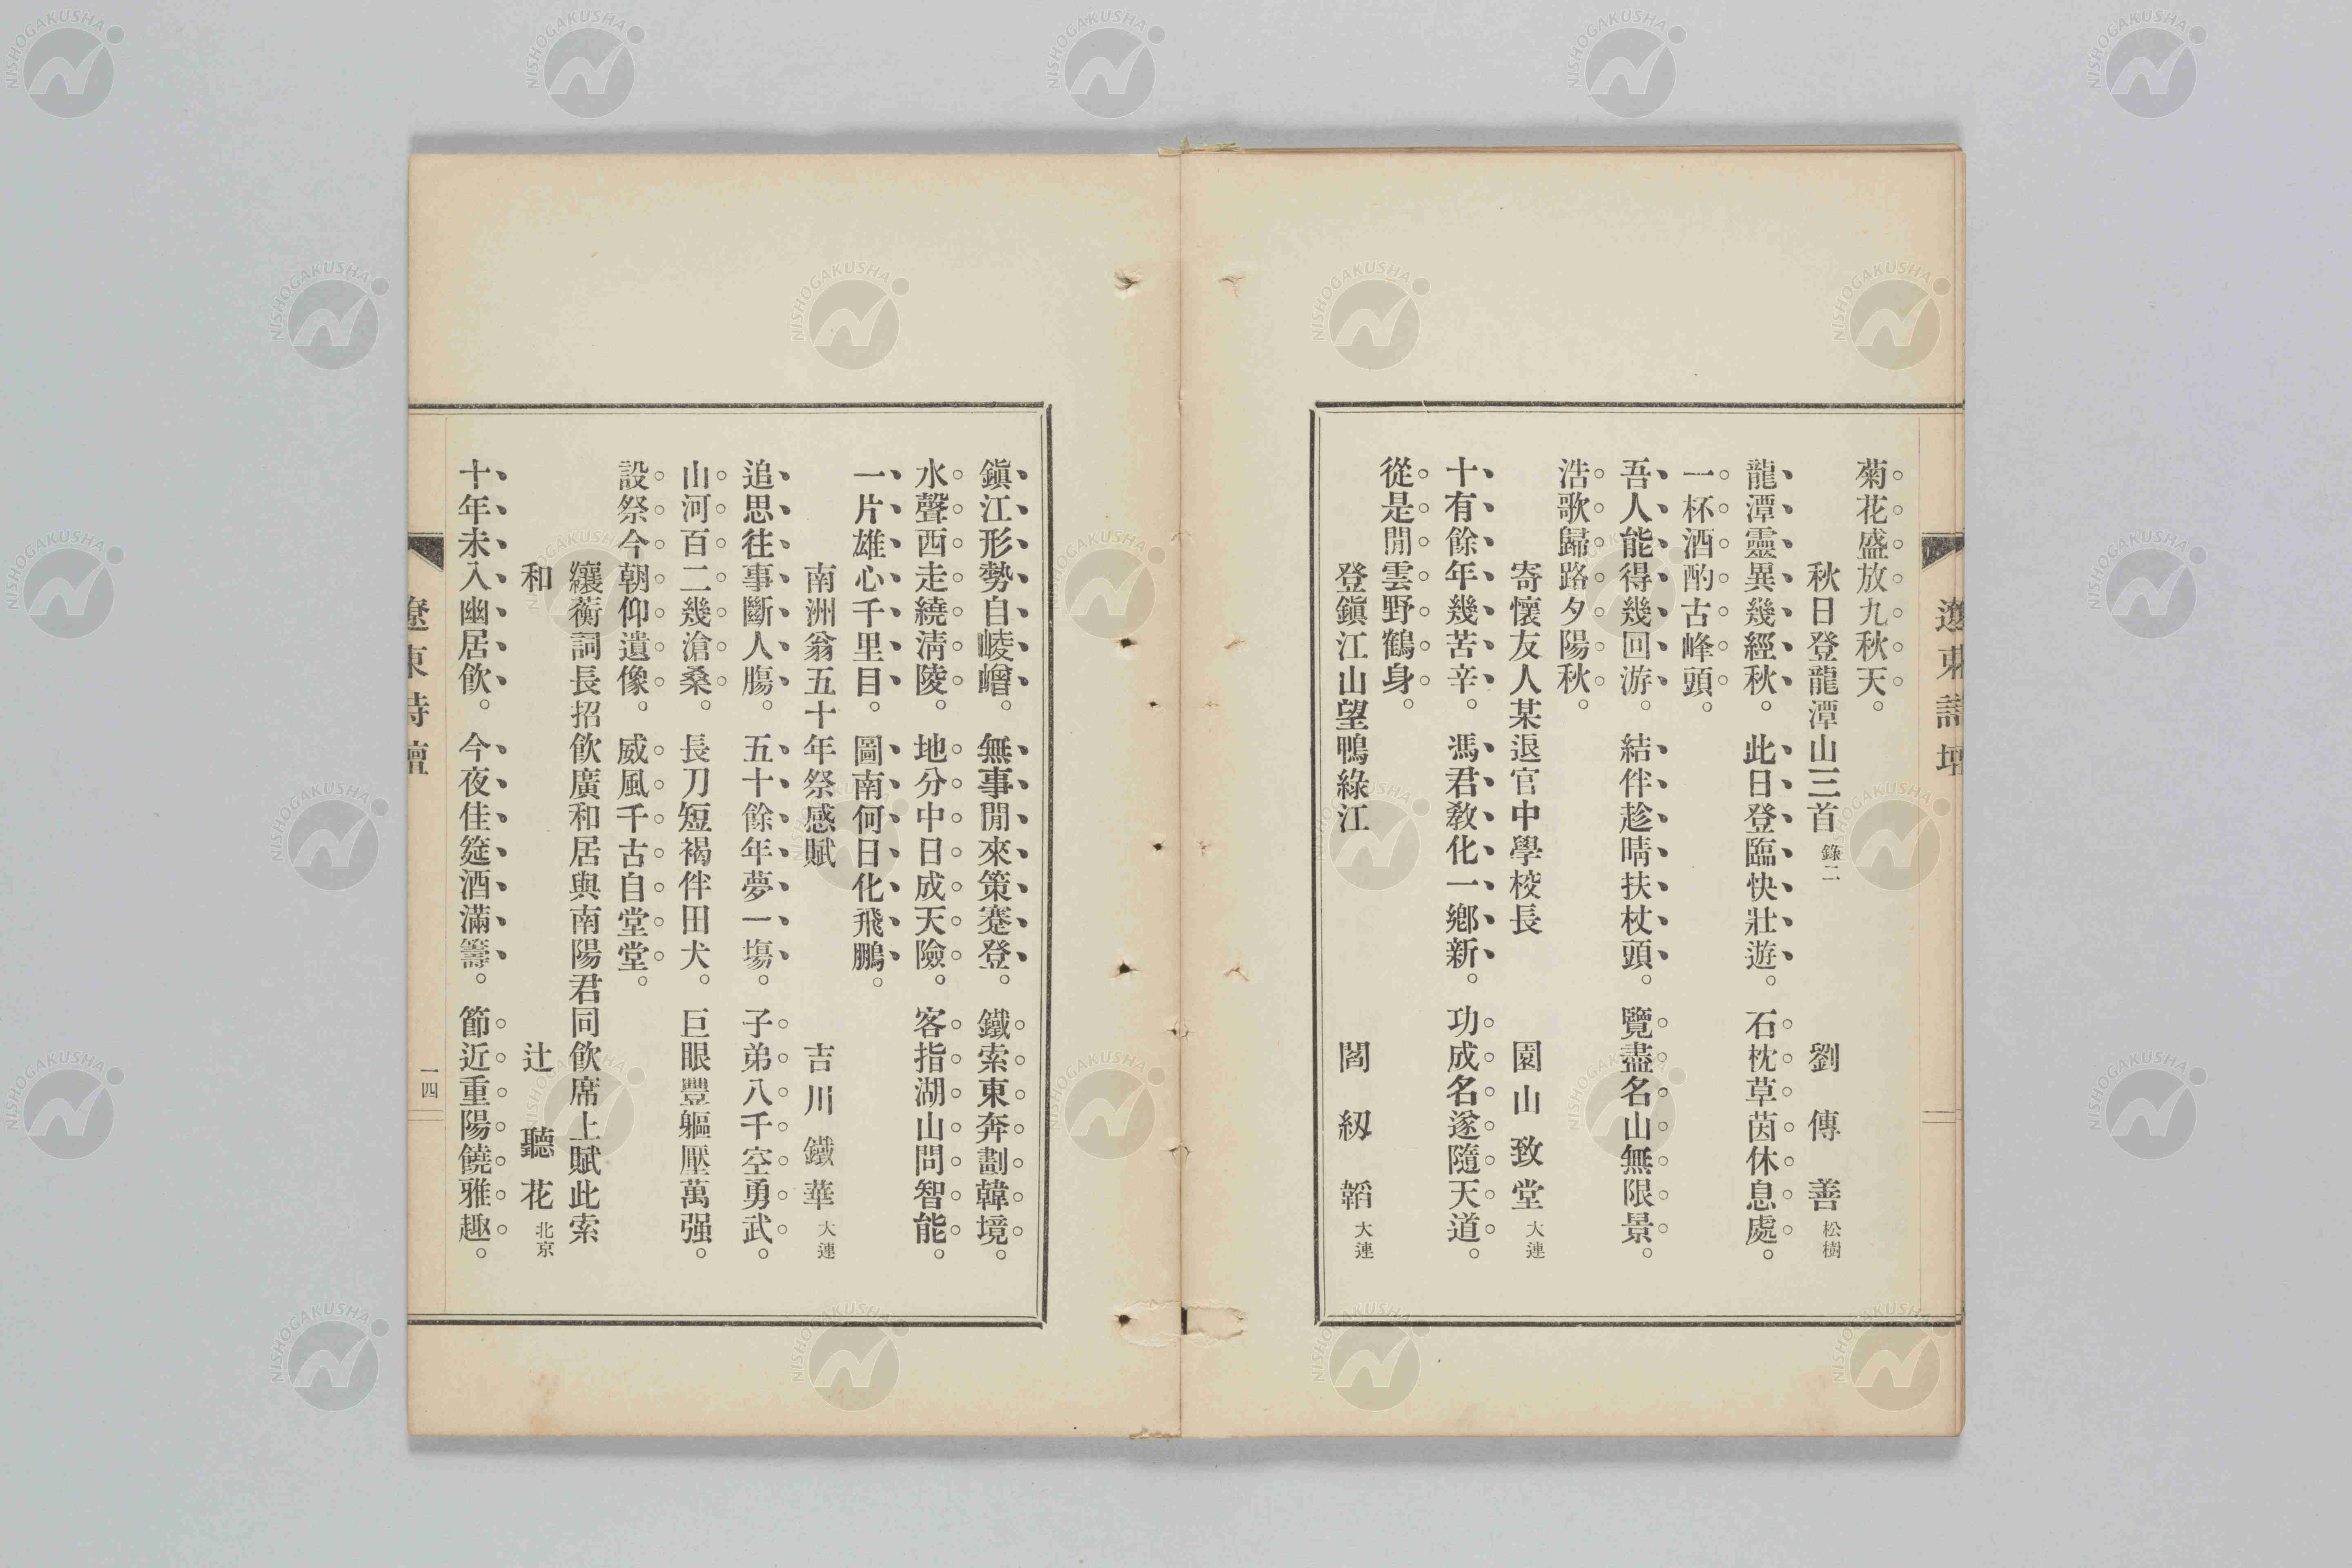 遼東詩壇
菊花盛放九秋天。
秋日登龍潭山三首 錄二 劉傳善 松樹
龍潭靈異幾經秋。此日登臨快壯遊。石枕草茵休息處。
一杯酒酌古峰頭。
吾人能得幾回游。結伴趁晴扶杖頭。覽盡名山無限景。
浩歌歸路夕陽秋。
寄懷友人某退官中學校長 園山致堂 大連
十有餘年幾苦辛。馮君敎化一鄕新。功成名遂隨天道。
從是閒雲野鶴身。
登鎭江山望鴨綠江 閻紉韜 大連
鎭江形勢自崚嶒。無事閒來策蹇登。鐵索東奔劃韓境。
水聲西走繞淸陵。地分中日成天險。客指湖山問智能。
一片雄心千里目。圖南何日化飛鵬。
南洲翁五十年祭感賦 吉川鐵華 大連
追思往事斷人膓。五十餘年夢一塲。子弟八千空勇武。
山河百二幾滄桑。長刀短褐伴田犬。巨眼豐軀壓萬强。
設祭今朝仰遺像。威風千古自堂堂。
纕蘅詞長招飮廣和居與南陽君同飮席上賦此索
和 辻聽花 北京
十年未入幽居飮。今夜佳筵酒滿籌。節近重陽饒雅趣。
遼東詩壇
一四
NISHOGAKUSHA